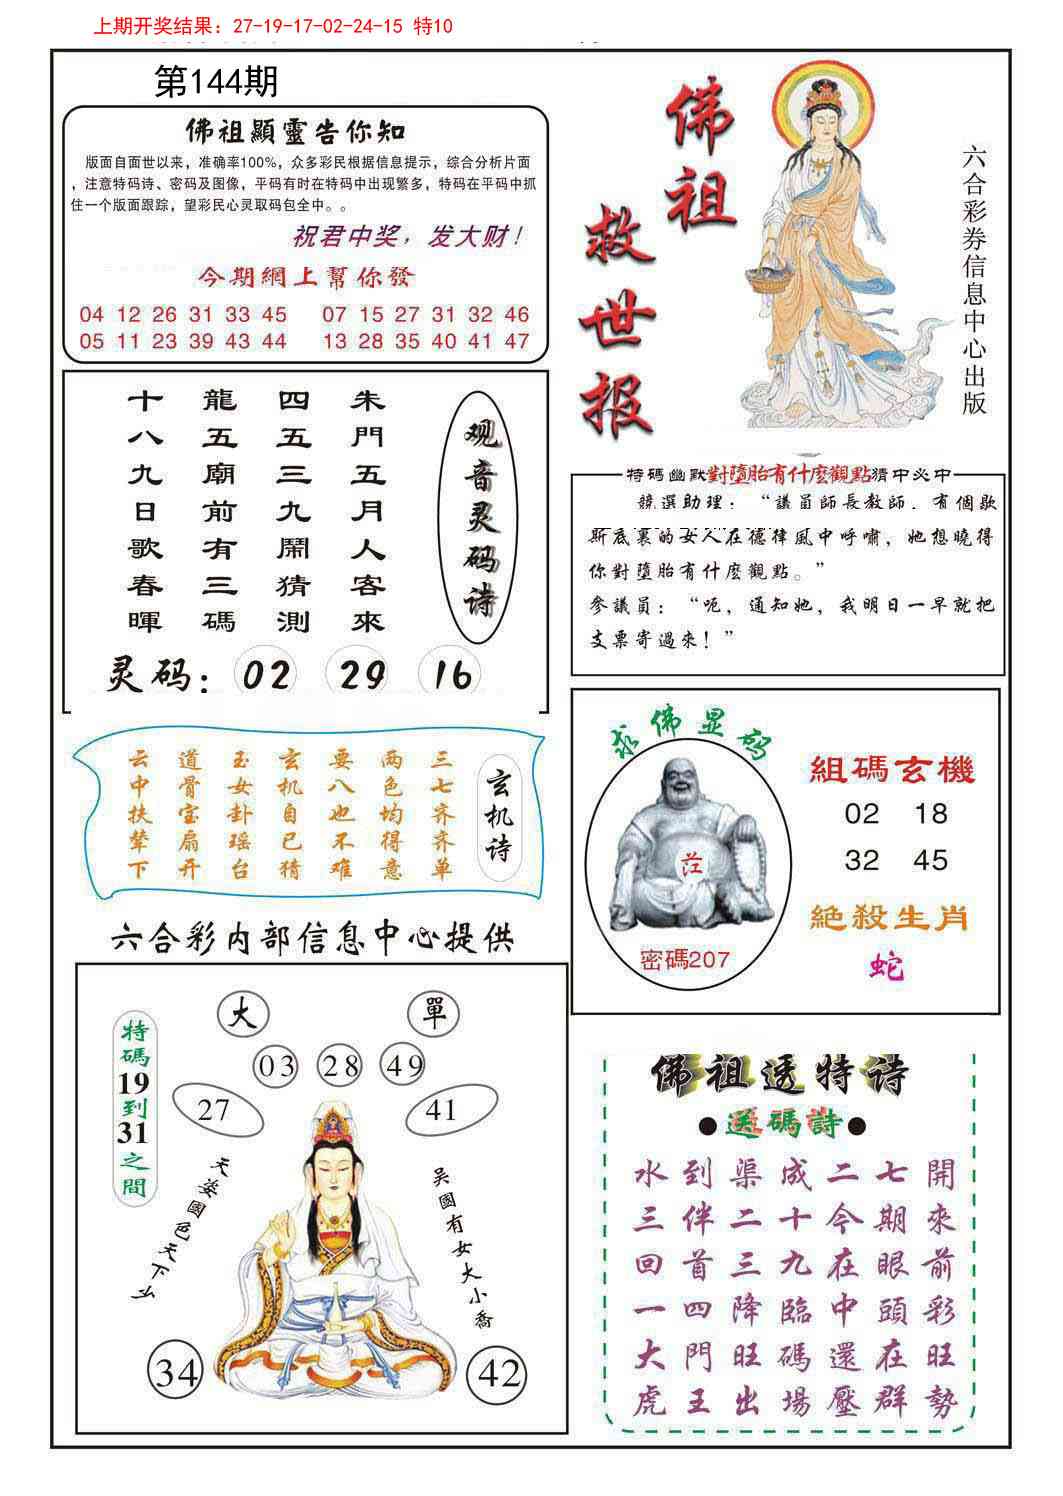 上期开奖结果：27-19-17-02-24-15 特10
第144期
佛祖顯靈告你知
版面自面世以来，准确率100%，众多彩民根据信息提示，综合分析片面
，注意特码诗、密码及图像，平码有时在特码中出现繁多，特码在平码中抓
住一个版面跟踪，望彩民心灵取码包全中。。
祝君中奖，发大财！
今期網上幫你發
04 12 26 31 33 45 07 15 27 31 32 46
05 11 23 39 43 44 13 28 35 40 41 47
佛祖
救世报
六合彩券信息中心出版
观音灵码诗
朱門五月人客來
四五三九開猜測
龍五廟前有三碼
十八九日歌春暉
灵码：02 29 16
特碼幽默對墮胎有什麼觀點猜中必中
競選助理：“議員師長教師，有個歇
斯底裏的女人在德律風中呼嘯，她想曉得
你對墮胎有什麼觀點。”
參議員：“呃，通知她，我明日一早就把
支票寄過來！”
玄机诗
三七齐齐单
两色均得意
要八也不难
玄机自已猜
玉女卦瑶台
道骨宝扇开
云中扶辇下
求佛显码
密碼207
組碼玄機
02 18
32 45
絶殺生肖
蛇
六合彩内部信息中心提供
大
單
特碼19到31之間
03 28 49
27
41
天姿國色天下少
吴國有女大小喬
34
42
佛祖透特诗
●送碼詩●
水到渠成二七開
三伴二十今期來
回首三九在眼前
一四降臨中頭彩
大門旺碼還在旺
虎王出場壓群勢